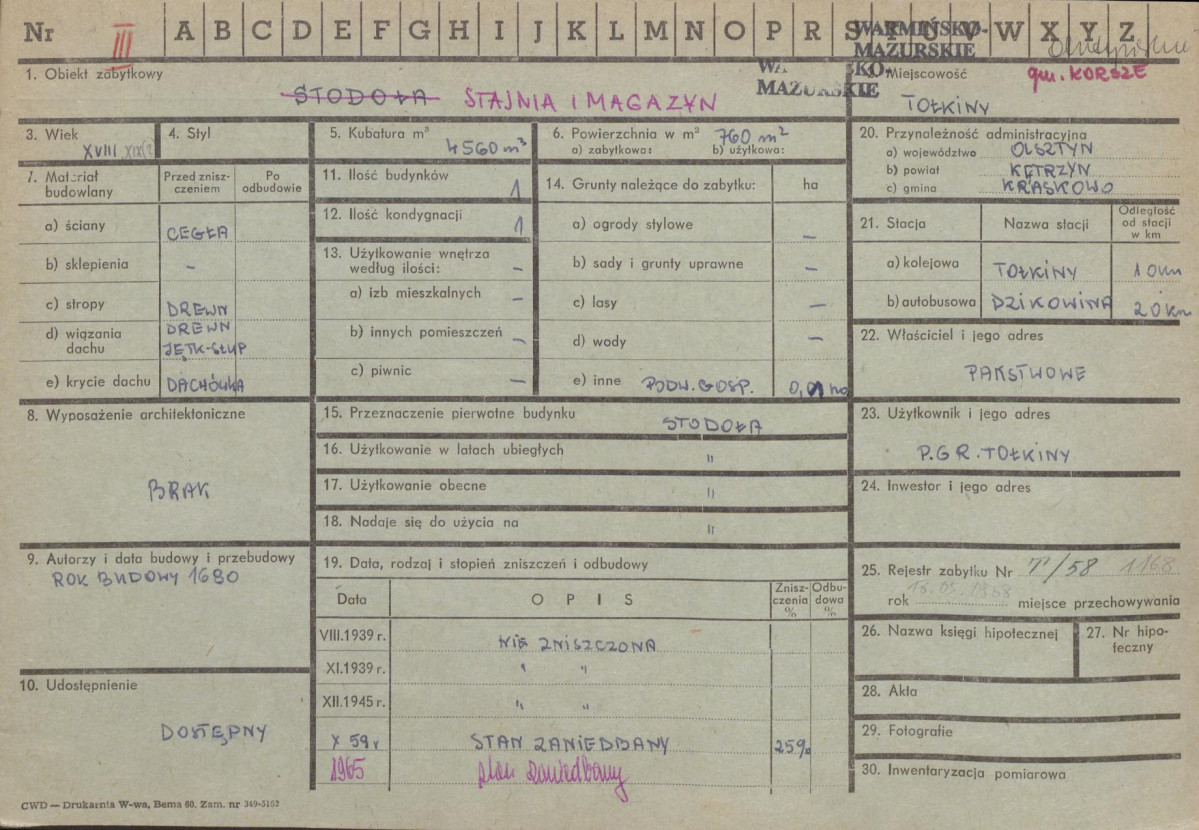 Nr III A B C D E F G H I J K L M N O P R S T U V W X Y Z
WARMIŃSKO-
MAZURSKIE
MAZURSKIE
1. Obiekt zabytkowy
STODOŁA STAJNIA I MAGAZYN
Miejscowość
gm. KORSZE
TOŁKINY
3. Wiek
XVIII
4. Styl
5. Kubatura m³
4560 m³
6. Powierzchnia w m² 760 m²
a) zabytkowa: b) użytkowa:
20. Przynależność administracyjna
a) województwo OLSZTYN
b) powiat KĘTRZYN
c) gmina KRASKOWO
7. Materiał budowlany
Przed zniszczeniem
Po odbudowie
a) ściany CEGŁA
b) sklepienia –
c) stropy DREWN
d) wiązania dachu DREWN
JĘTK-SŁUP
e) krycie dachu DACHÓWKA
11. Ilość budynków 1
12. Ilość kondygnacji 1
13. Użytkowanie wnętrza
według ilości: –
a) izb mieszkalnych –
b) innych pomieszczeń –
c) piwnic –
14. Grunty należące do zabytku: ha
a) ogrody stylowe –
b) sady i grunty uprawne –
c) lasy –
d) wody –
e) inne PODW. GOSP. 0,01 ha
21. Stacja Nazwa stacji Odległość od stacji w km
a) kolejowa TOŁKINY 1 0km
b) autobusowa DZIKOWINA 2 0km
22. Właściciel i jego adres
PAŃSTWOWE
8. Wyposażenie architektoniczne
BRAK
15. Przeznaczenie pierwotne budynku
STODOŁA
16. Użytkowanie w latach ubiegłych "
17. Użytkowanie obecne "
18. Nadaje się do użycia na "
23. Użytkownik i jego adres
P.G R. TOŁKINY
24. Inwestor i jego adres
9. Autorzy i data budowy i przebudowy
ROK BUDOWY 1680
19. Data, rodzaj i stopień zniszczeń i odbudowy
Data OPIS Zniszczenia % Odbudowa %
VIII.1939 r. NIE ZNISZCZONA
XI.1939 r. " "
XII.1945 r. " "
X 59 r STAN ZANIEDBANY 25%
1965 stan zaniedbany
25. Rejestr zabytku Nr T/58 1168
rok 18.05.1968 miejsce przechowywania
26. Nazwa księgi hipotecznej
27. Nr hipoteczny
10. Udostępnienie
DOSTĘPNY
28. Akta
29. Fotografie
30. Inwentaryzacja pomiarowa
CWD — Drukarnia W-wa, Bema 60. Zam. nr 349-5162